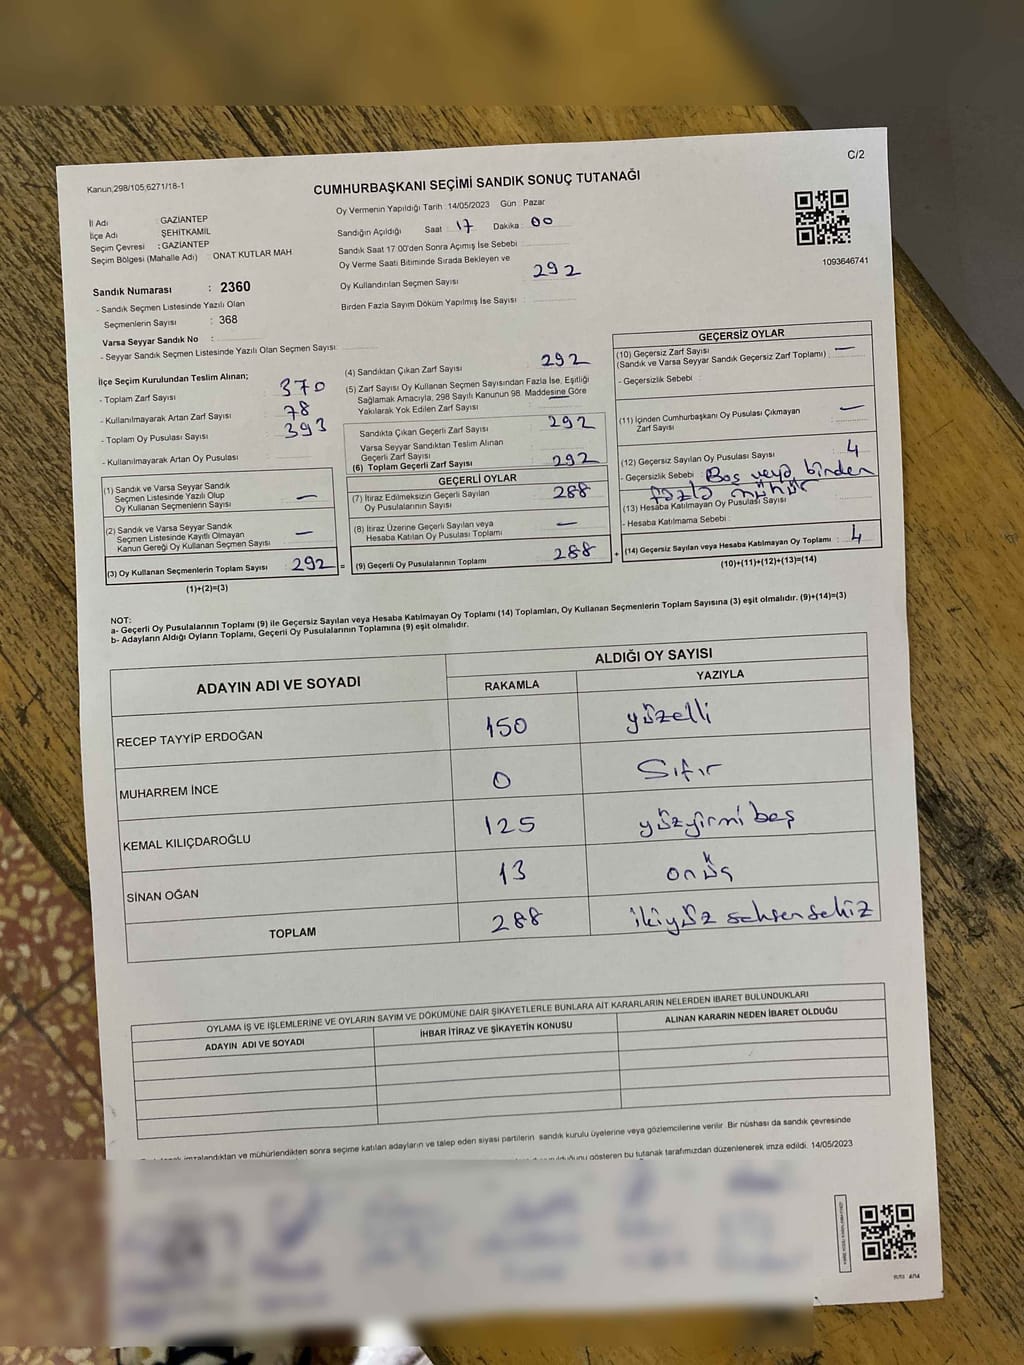 C/2
Kanun;298/105,6271/18-1
CUMHURBAŞKANI SEÇİMİ SANDIK SONUÇ TUTANAĞI
İl Adı GAZİANTEP
İlçe Adı ŞEHİTKAMİL
Seçim Çevresi : GAZİANTEP
Seçim Bölgesi (Mahalle Adı) : ONAT KUTLAR MAH
Sandık Numarası : 2360
- Sandık Seçmen Listesinde Yazılı Olan
Seçmenlerin Sayısı : 368
Varsa Seyyar Sandık No :
- Seyyar Sandık Seçmen Listesinde Yazılı Olan Seçmen Sayısı:
Oy Vermenin Yapıldığı Tarih : 14/05/2023 Gün : Pazar
Sandığın Açıldığı Saat : 17 Dakika : 00
Sandık Saat 17 00'den Sonra Açımış İse Sebebi :
Oy Verme Saati Bitiminde Sırada Bekleyen ve
Oy Kullandırılan Seçmen Sayısı : 292
Birden Fazla Sayım Döküm Yapılmış İse Sayısı :
1093646741
İlçe Seçim Kurulundan Teslim Alınan;
- Toplam Zarf Sayısı : 370
- Kullanılmayarak Artan Zarf Sayısı : 78
- Toplam Oy Pusulası Sayısı : 393
- Kullanılmayarak Artan Oy Pusulası :
(1) Sandık ve Varsa Seyyar Sandık
Seçmen Listesinde Yazılı Olup
Oy Kullanan Seçmenlerin Sayısı : —
(2) Sandık ve Varsa Seyyar Sandık
Seçmen Listesinde Kayıtlı Olmayan
Kanun Gereği Oy Kullanan Seçmen Sayısı : —
(3) Oy Kullanan Seçmenlerin Toplam Sayısı : 292 =
(1)+(2)=(3)
(4) Sandıktan Çıkan Zarf Sayısı : 292
(5) Zarf Sayısı Oy Kullanan Seçmen Sayısından Fazla İse, Eşitliği
Sağlamak Amacıyla, 298 Sayılı Kanunun 98. Maddesine Göre
Yakılarak Yok Edilen Zarf Sayısı : —
Sandıkta Çıkan Geçerli Zarf Sayısı : 292
Varsa Seyyar Sandıktan Teslim Alınan
Geçerli Zarf Sayısı :
(6) Toplam Geçerli Zarf Sayısı : 292
GEÇERLİ OYLAR
(7) İtiraz Edilmeksizin Geçerli Sayılan
Oy Pusulalarının Sayısı : 288
(8) İtiraz Üzerine Geçerli Sayılan veya
Hesaba Katılan Oy Pusulası Toplamı : —
(9) Geçerli Oy Pusulalarının Toplamı : 288 +
GEÇERSİZ OYLAR
(10) Geçersiz Zarf Sayısı : —
(Sandık ve Varsa Seyyar Sandık Geçersiz Zarf Toplamı)
- Geçersizlik Sebebi :
(11) İçinden Cumhurbaşkanı Oy Pusulası Çıkmayan
Zarf Sayısı : —
(12) Geçersiz Sayılan Oy Pusulası Sayısı : 4
- Geçersizlik Sebebi : Boş veya birden
fazla mühür
(13) Hesaba Katılmayan Oy Pusulası Sayısı :
- Hesaba Katılmama Sebebi :
(14) Geçersiz Sayılan veya Hesaba Katılmayan Oy Toplamı : 4
(10)+(11)+(12)+(13)=(14)
NOT:
a- Geçerli Oy Pusulalarının Toplamı (9) ile Geçersiz Sayılan veya Hesaba Katılmayan Oy Toplamı (14) Toplamları, Oy Kullanan Seçmenlerin Toplam Sayısına (3) eşit olmalıdır. (9)+(14)=(3)
b- Adayların Aldığı Oyların Toplamı, Geçerli Oy Pusulalarının Toplamına (9) eşit olmalıdır.
ADAYIN ADI VE SOYADI ALDIĞI OY SAYISI
RAKAMLA YAZIYLA
RECEP TAYYİP ERDOĞAN 150 yüzelli
MUHARREM İNCE 0 Sıfır
KEMAL KILIÇDAROĞLU 125 yüzyirmi beş
SİNAN OĞAN 13 onüç
TOPLAM 288 ikiyüz seksensekiz
OYLAMA İŞ VE İŞLEMLERİNE VE OYLARIN SAYIM VE DÖKÜMÜNE DAİR ŞİKAYETLERLE BUNLARA AİT KARARLARIN NELERDEN İBARET BULUNDUKLARI
ADAYIN ADI VE SOYADI İHBAR İTİRAZ VE ŞİKAYETİN KONUSU ALINAN KARARIN NEDEN İBARET OLDUĞU
imzalandıktan ve mühürlendikten sonra seçime katılan adayların ve talep eden siyasi partilerin sandık kurulu üyelerine veya gözlemcilerine verilir. Bir nüshası da sandık çevresinde
gösteren bu tutanak tarafımızdan düzenlenerek imza edildi. 14/05/2023